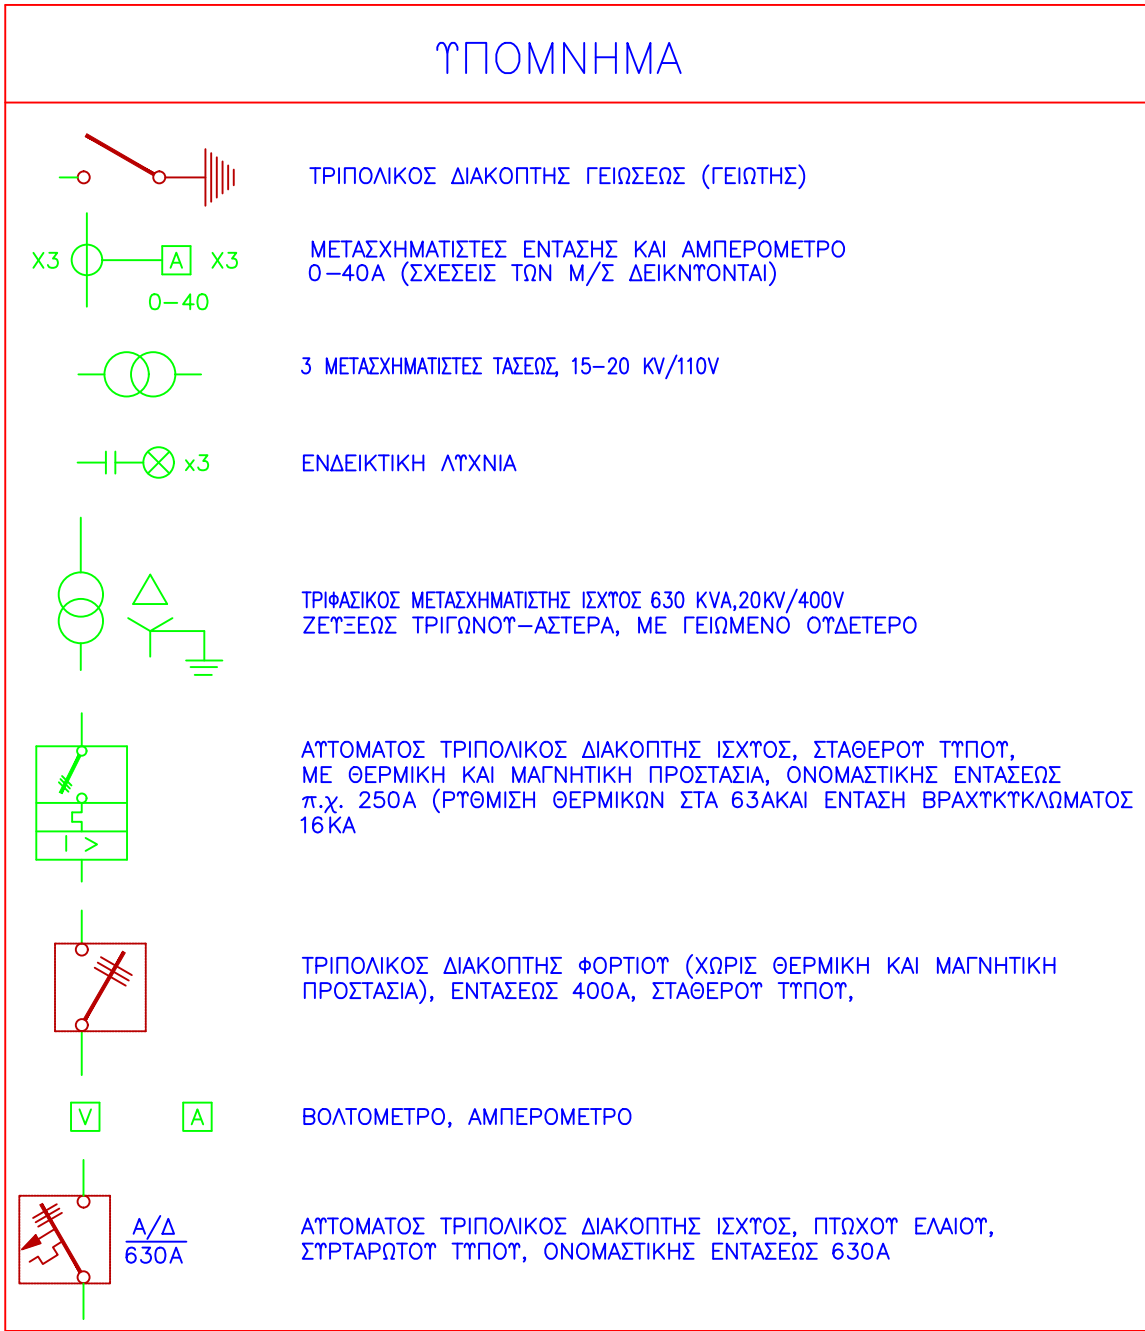 ΥΠΟΜΝΗΜΑ
ΤΡΙΠΟΛΙΚΟΣ ΔΙΑΚΟΠΤΗΣ ΓΕΙΩΣΕΩΣ (ΓΕΙΩΤΗΣ)
X3 A X3
0-40
ΜΕΤΑΣΧΗΜΑΤΙΣΤΕΣ ΕΝΤΑΣΗΣ ΚΑΙ ΑΜΠΕΡΟΜΕΤΡΟ
0-40A (ΣΧΕΣΕΙΣ ΤΩΝ Μ/Σ ΔΕΙΚΝΥΟΝΤΑΙ)
3 ΜΕΤΑΣΧΗΜΑΤΙΣΤΕΣ ΤΑΣΕΩΣ, 15-20 KV/110V
x3
ΕΝΔΕΙΚΤΙΚΗ ΛΥΧΝΙΑ
ΤΡΙΦΑΣΙΚΟΣ ΜΕΤΑΣΧΗΜΑΤΙΣΤΗΣ ΙΣΧΥΟΣ 630 KVA,20KV/400V
ΖΕΥΞΕΩΣ ΤΡΙΓΩΝΟΥ-ΑΣΤΕΡΑ, ΜΕ ΓΕΙΩΜΕΝΟ ΟΥΔΕΤΕΡΟ
I >
ΑΥΤΟΜΑΤΟΣ ΤΡΙΠΟΛΙΚΟΣ ΔΙΑΚΟΠΤΗΣ ΙΣΧΥΟΣ, ΣΤΑΘΕΡΟΥ ΤΥΠΟΥ,
ΜΕ ΘΕΡΜΙΚΗ ΚΑΙ ΜΑΓΝΗΤΙΚΗ ΠΡΟΣΤΑΣΙΑ, ΟΝΟΜΑΣΤΙΚΗΣ ΕΝΤΑΣΕΩΣ
π.χ. 250A (ΡΥΘΜΙΣΗ ΘΕΡΜΙΚΩΝ ΣΤΑ 63ΑΚΑΙ ΕΝΤΑΣΗ ΒΡΑΧΥΚΥΚΛΩΜΑΤΟΣ
16KA
ΤΡΙΠΟΛΙΚΟΣ ΔΙΑΚΟΠΤΗΣ ΦΟΡΤΙΟΥ (ΧΩΡΙΣ ΘΕΡΜΙΚΗ ΚΑΙ ΜΑΓΝΗΤΙΚΗ
ΠΡΟΣΤΑΣΙΑ), ΕΝΤΑΣΕΩΣ 400A, ΣΤΑΘΕΡΟΥ ΤΥΠΟΥ,
V A
ΒΟΛΤΟΜΕΤΡΟ, ΑΜΠΕΡΟΜΕΤΡΟ
Α/Δ
630A
ΑΥΤΟΜΑΤΟΣ ΤΡΙΠΟΛΙΚΟΣ ΔΙΑΚΟΠΤΗΣ ΙΣΧΥΟΣ, ΠΤΩΧΟΥ ΕΛΑΙΟΥ,
ΣΥΡΤΑΡΩΤΟΥ ΤΥΠΟΥ, ΟΝΟΜΑΣΤΙΚΗΣ ΕΝΤΑΣΕΩΣ 630A